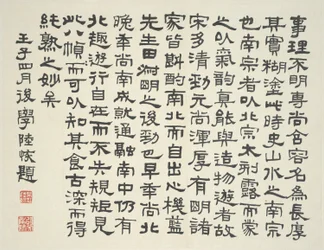 事理不明專尚含容名為長厚
其實糊塗此時史山水之南宗
也南宗者以北宗太刻露而蒙
之以氣韵真能與造物遊者故
宋多清勁元尚渾厚有明諸
家皆斟酌南北而自出心機藍
先生田叔明之後勁早季尚北
晚季尚南成就通融南中仍有
北趣遊行自在而不失規矩見
此八幀而可以知其食古深而得
純熟之妙矣
壬子四月後學陸恢題